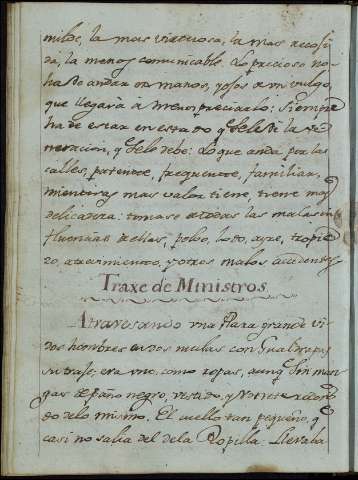 milde, la mas virtuosa, la mas recoji
da, la menos comunicable. Lo precioso no
ha de andar en manos, y ojos de un vulgo,
que llegara a menospreciarlo: siempre
ha de estar en estado q se le de la ve
neracion, q se le debe: Lo que anda por las
calles, patente, frequente, familiar,
mientras mas valor tiene, tiene mas
delicadeza: tomase de todas las malas in
fluencias de ellas, polvo, lodo, ayre, tropie
zo, atrevimiento, y otros malos accidentes
Traxe de Ministros
Atravesando una Plaza grande vi
dos hombres en dos mulas con Gualdrapas
su traje, era uno, como ropas, aunq sin man
gas de paño negro, vestido, y bonete redon
do de lo mismo. El cuello tan pequeño, q
casi no salia del de la Ropilla. Llevaba